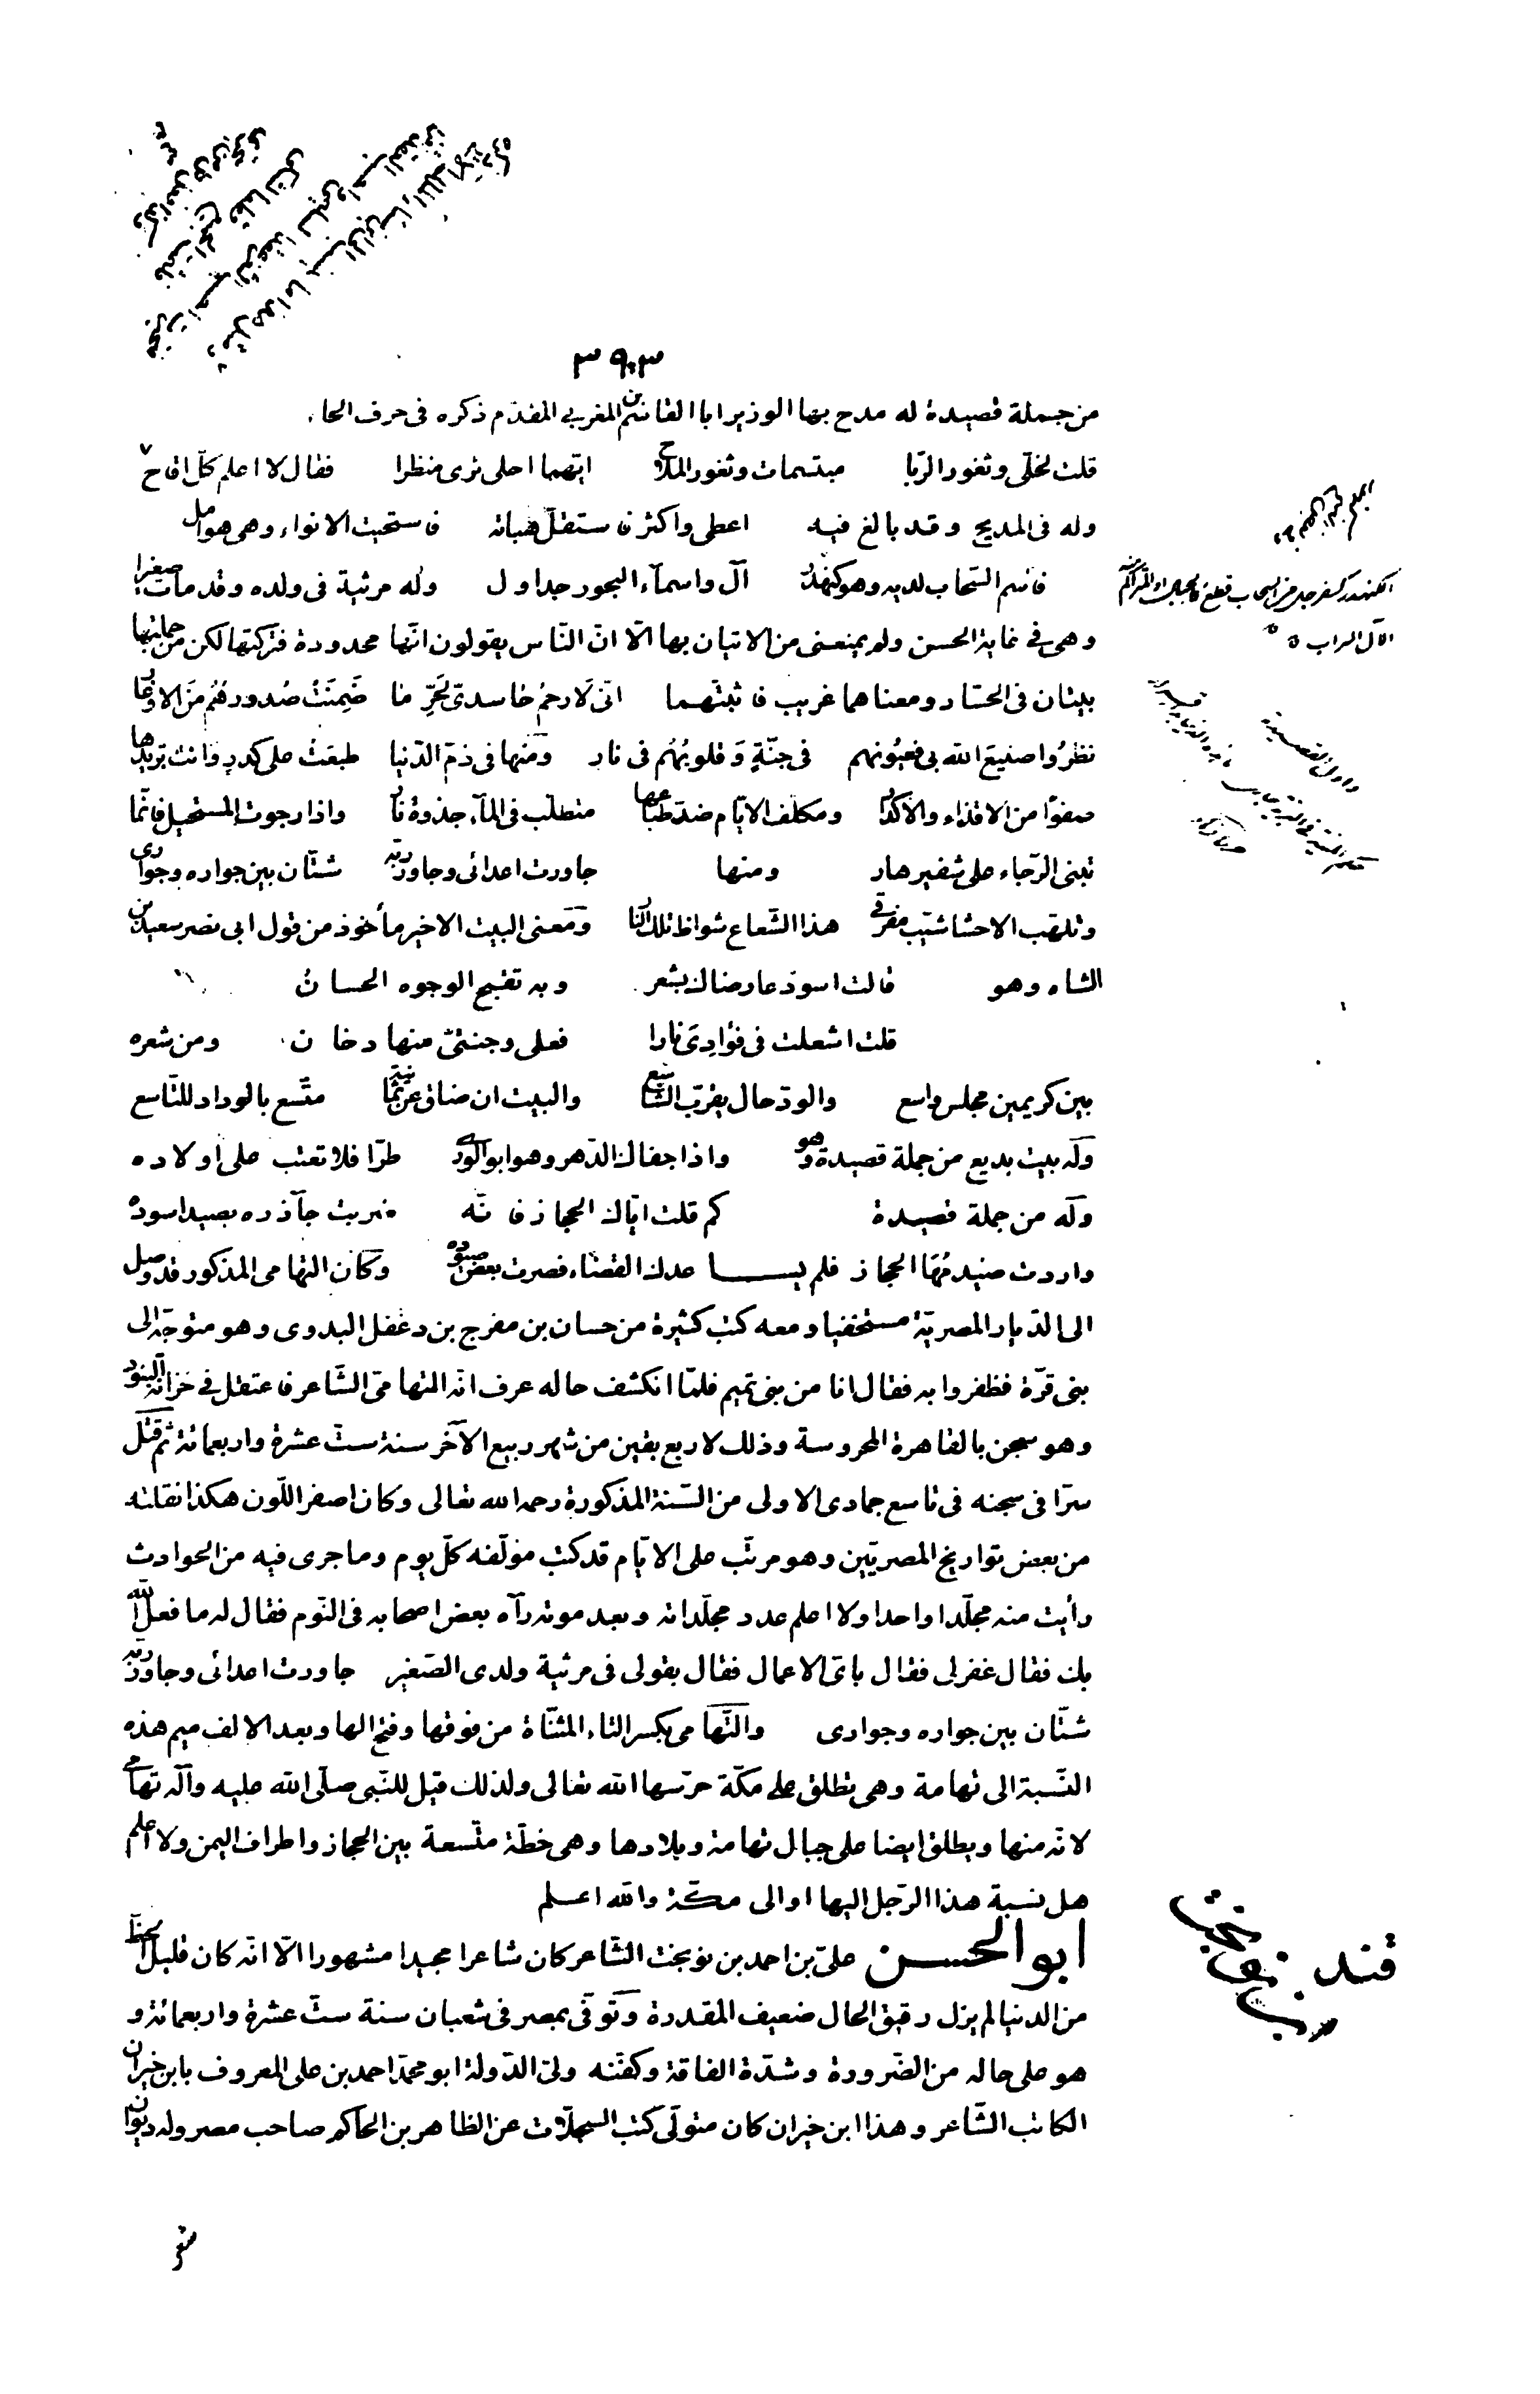 ٣٩٣
من جملة قصيدة له مدح بها الوزير ابا القاسم بن المغربي المقدّم ذكره فى حرف الحاء
قلت لخلّى وثغور الرّبا مبتسمات وثغور الملاح ايّهما احلى ترى منظرا فقال لا اعلم كلّ اقاح
وله فى المديح وقد بالغ فيه اعطى واكثر فاستقلّ هباته فاستحيت الانواء وهى هوامل
فاسم السّحاب لديه وهو كنهور آل واسمآء البحور جداول وله مرثية فى ولده وقد مات صغيرا
وهى فى غاية الحسن ولم يمنعنى من الاتيان بها الّا انّ النّاس يقولون انّها محدودة فتركتها لكن من جملتها
بيتان فى الحسّاد ومعناهما غريب فاثبتّهما انّى لَارحمُ حاسدىّ لِحَرِّ ما ضَمِنَتْ صُدورهُم مِنَ الاوغار
نظرُوا صنيعَ الله بى فعيُونهم فى جنّةٍ وَقلوبُهُم فى نار ومنها فى ذمّ الدّنيا طبعتْ على كدرٍ وانت تريدها
صفوًا من الاقذاء والاكدار ومكلّف الايّام ضدّ طباعها متطلّب فى المآء جذوة نار واذا رجوت المستحيل فانّما
تبنى الرّجاء على شفير هار ومنها جاورت اعدائى وجاور ربّه شتّان بين جواره وجوارى
وتلهّب الاحشا شيّب مفرقى هذا الشّعاع شواظ تلك النار ومعنى البيت الاخير مأخوذ من قول ابى نصر سعيد بن
الشاه وهو قالت اسودّ عارضاك بشعر وبه تقبح الوجوه الحسان
قلت اشعلت فى فؤادى نارا فعلى وجنتىّ منها دخان ومن شعره
بين كريمين مجلس واسع والودّ حال يقرّب الشاسع والبيت ان ضاق عن ثمانية متّسع بالوداد للتّاسع
وله بيت بديع من جملة قصيدة وهو واذا جفاك الدّهر وهو ابو الورى طرّا فلا تعتب على اولاده
وله من جملة قصيدة كم قلت ايّاك الحجاز فانّه ضريت جآذره بصيد اسوده
واردت صيد مَهَا الحجاز فلم يساعدك القضاء فصرت بعض صيوده وكان التهامى المذكور قد وصل
الى الدّيار المصريّة مستخفيا ومعه كتب كثيرة من حسان بن مفرج بن دغفل البدوى وهو متوجّه الى
بنى قرّة فظفروا به فقال انا من بنى تميم فلمّا انكشف حاله عرف انّه التهامىّ الشّاعر فاعتقل فى خزانة البنود
وهو سجن بالقاهرة المحروسة وذلك لاربع بقين من شهر ربيع الآخر سنة ستّ عشرة واربعمائة ثم قتل
سرّا فى سجنه فى تاسع جمادى الاولى من السّنة المذكورة رحمه الله تعالى وكان اصفر اللّون هكذا نقلته
من بعض تواريخ المصريّين وهو مرتّب على الايّام قد كتب مؤلّفه كلّ يوم وما جرى فيه من الحوادث
رأيت منه مجلّدا واحدا ولا اعلم عدد مجلّداته وبعد موته رآه بعض اصحابه فى النّوم فقال له ما فعل الله
بك فقال غفر لى فقال باىّ الاعمال فقال بقولى فى مرثية ولدى الصّغير جاورت اعدائى وجاور ربّه
شتّان بين جواره وجوارى والتّهامى بكسر التاء المثنّاة من فوقها وفتح الها وبعد الالف ميم هذه
النّسبة الى تهامة وهى تطلق على مكّة حرّسها الله تعالى ولذلك قيل للنّبى صلّى الله عليه وآله تهامى
لانّه منها ويطلق ايضا على جبال تهامة وبلادها وهى خطّة متّسعة بين الحجاز واطراف اليمن ولا اعلم
هل نسبة هذا الرّجل اليها او الى مكّة والله اعلم
ابو الحسن علىّ بن احمد بن نوبخت الشّاعر كان شاعرا مجيدا مشهورا الّا انّه كان قليل الحظّ
من الدنيا لم يزل رقيق الحال ضعيف المقدرة وتوفّى بمصر فى شعبان سنة ستّ عشرة واربعمائة و
هو على حاله من الضّرورة وشدّة الفاقة وكفّنه ولىّ الدّولة ابو محمّد احمد بن على المعروف بابن خيران
الكاتب الشّاعر وهذا ابن خيران كان متولّى كتب السجلّات عن الظاهر بن الحاكم صاحب مصر وله ديوان
شعر